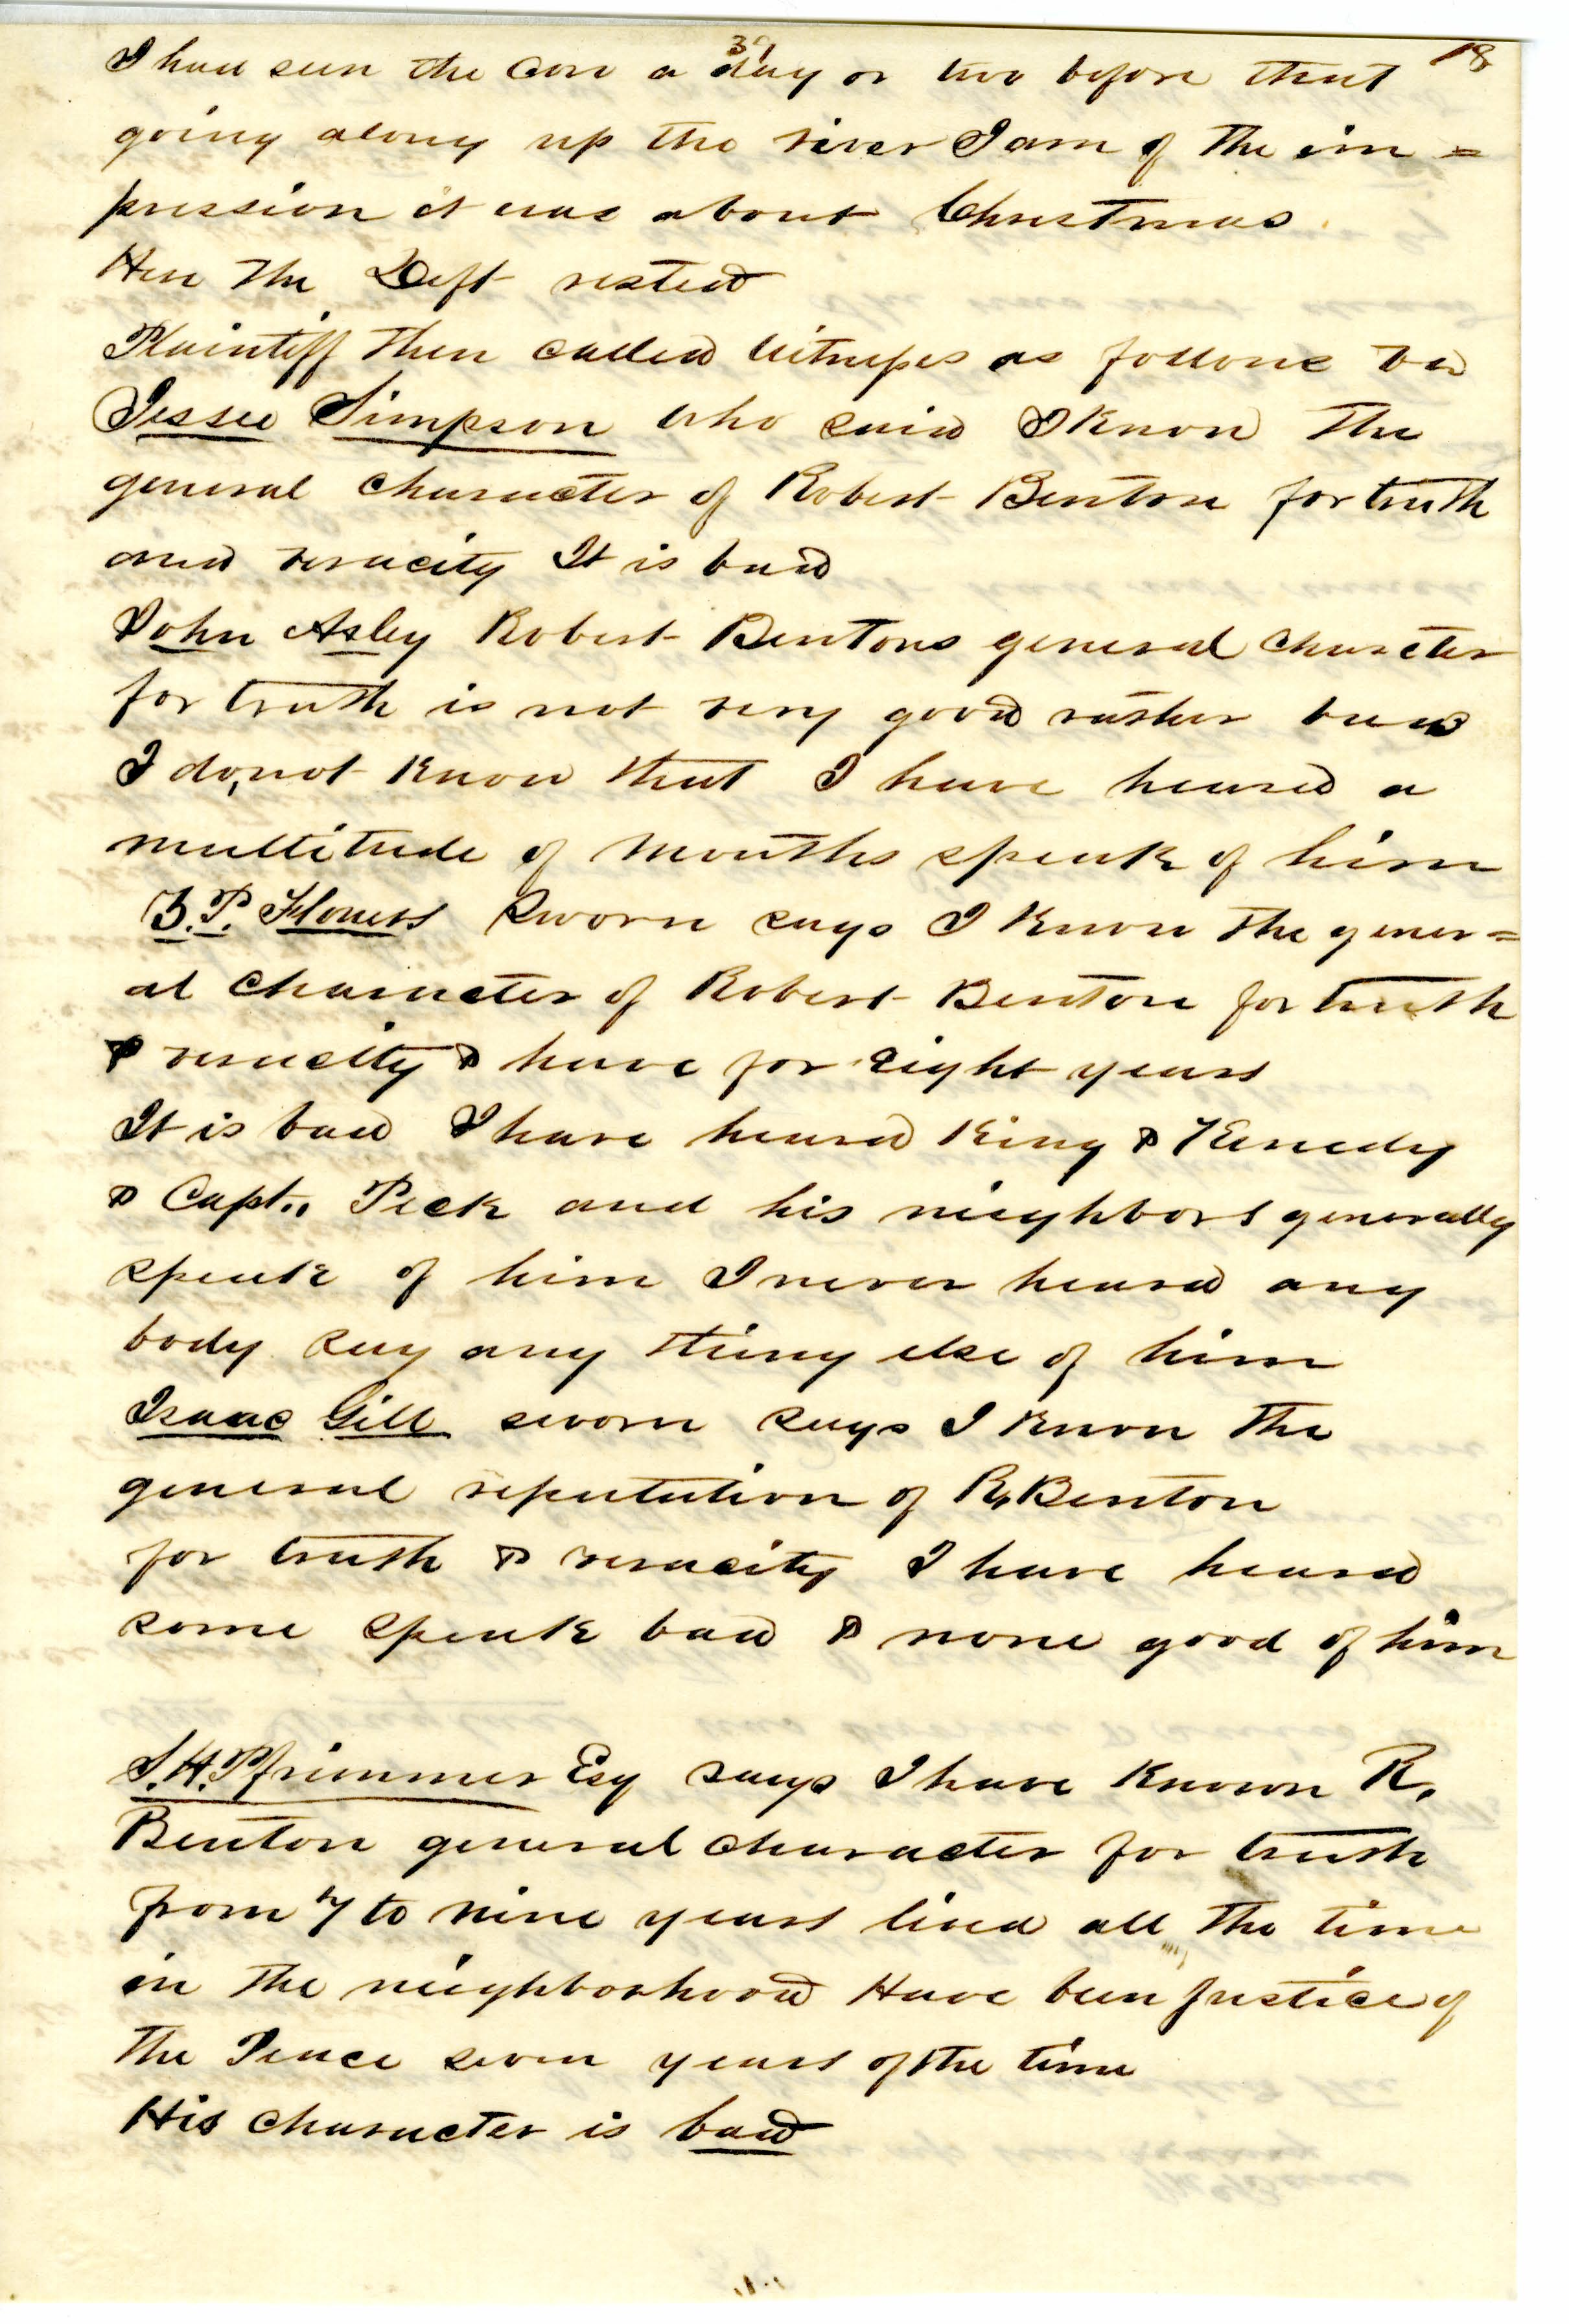 39
18
I had seen the Cow a day or two before that
going along up the river I am of the im=
pression it was about Christmas
Here the Deft rested
Plaintiff then called witnesses as follows
Jessee Simpson who said I Know the
general character of Robert Benton for truth
and veracity It is bad
John Asley Robert Bentons general charcter
for truth is not very good rather bad
I do not Know that I have heared a
multitude of mouths speak of him
P. sworn says I Know the gener=
al Character of Robert Benton for truth
& veracity & have for Eight years
It is bad I have heared King & Kenedy
& Capt.. Peck and his neighbors generally
speak of him I never heared any
body say any thing else of him
Isaac Gill sworn says I Know the
general reputation of R. Benton
for truth & veracity I have heared
some speak bad & none good of him
S. H. Pfrimmer Esq says I have Known R.
Benton general character for truth
from 7 to nine years lived all the time
in the neighborhood Have been Justice of
the Peace seven years of the time
His character is bad